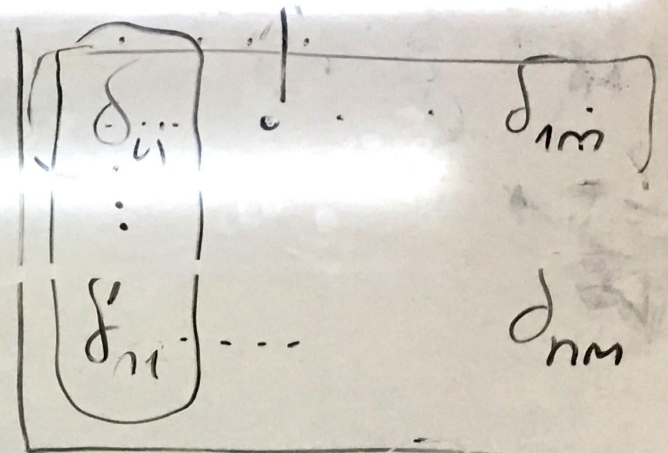 δ11 ... . . . δ1m
⋮
δn1 . . . . δnm